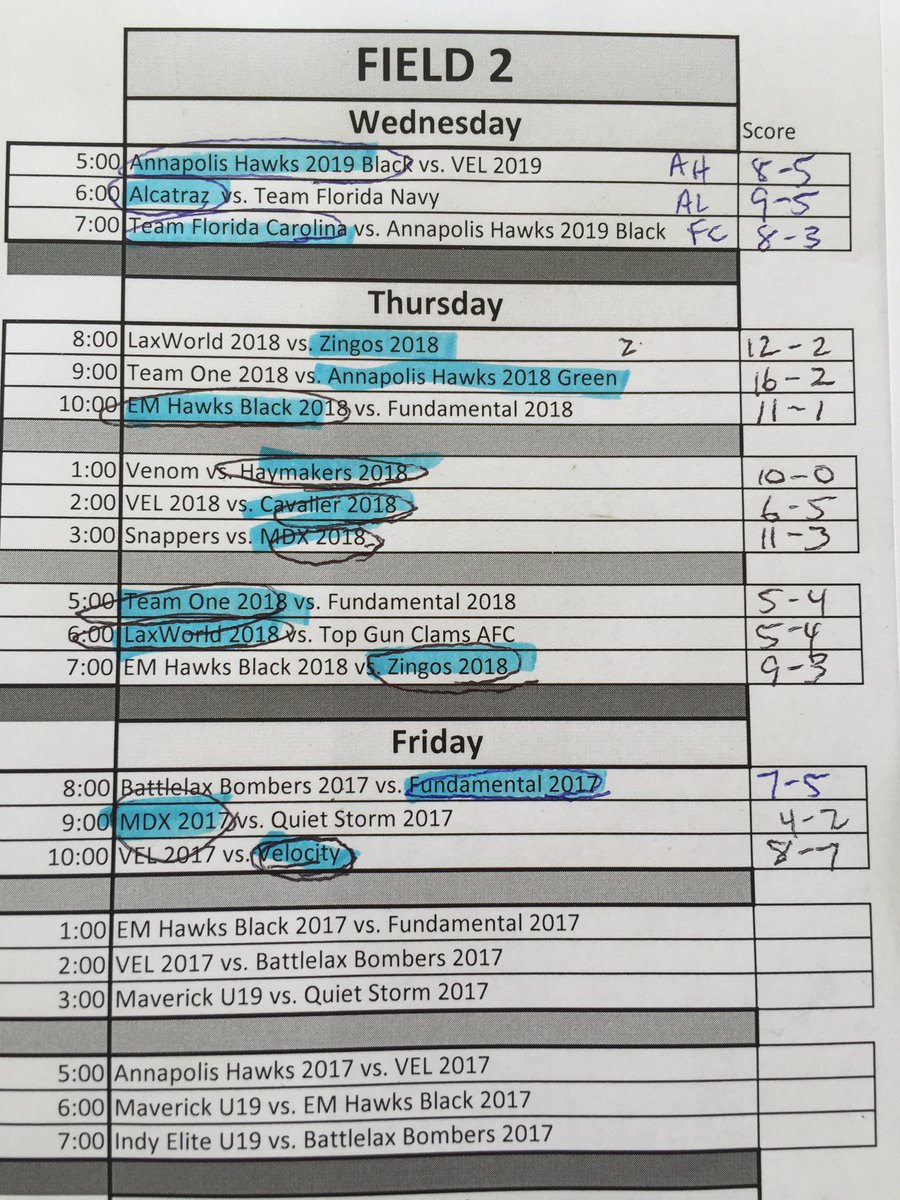 FIELD 2
Wednesday
Score
5:00 Annapolis Hawks 2019 Black vs. VEL 2019 AH 8-5
6:00 Alcatraz vs. Team Florida Navy AL 9-5
7:00 Team Florida Carolina vs. Annapolis Hawks 2019 Black FC 8-3
Thursday
8:00 LaxWorld 2018 vs. Zingos 2018 2 12-2
9:00 Team One 2018 vs. Annapolis Hawks 2018 Green 16-2
10:00 EM Hawks Black 2018 vs. Fundamental 2018 11-1
1:00 Venom vs. Haymakers 2018 10-0
2:00 VEL 2018 vs. Cavalier 2018 6-5
3:00 Snappers vs. MDX 2018 11-3
5:00 Team One 2018 vs. Fundamental 2018 5-4
6:00 LaxWorld 2018 vs. Top Gun Clams AFC 5-4
7:00 EM Hawks Black 2018 vs. Zingos 2018 9-3
Friday
8:00 Battlelax Bombers 2017 vs. Fundamental 2017 7-5
9:00 MDX 2017 vs. Quiet Storm 2017 4-2
10:00 VEL 2017 vs. Velocity 8-7
1:00 EM Hawks Black 2017 vs. Fundamental 2017
2:00 VEL 2017 vs. Battlelax Bombers 2017
3:00 Maverick U19 vs. Quiet Storm 2017
5:00 Annapolis Hawks 2017 vs. VEL 2017
6:00 Maverick U19 vs. EM Hawks Black 2017
7:00 Indy Elite U19 vs. Battlelax Bombers 2017